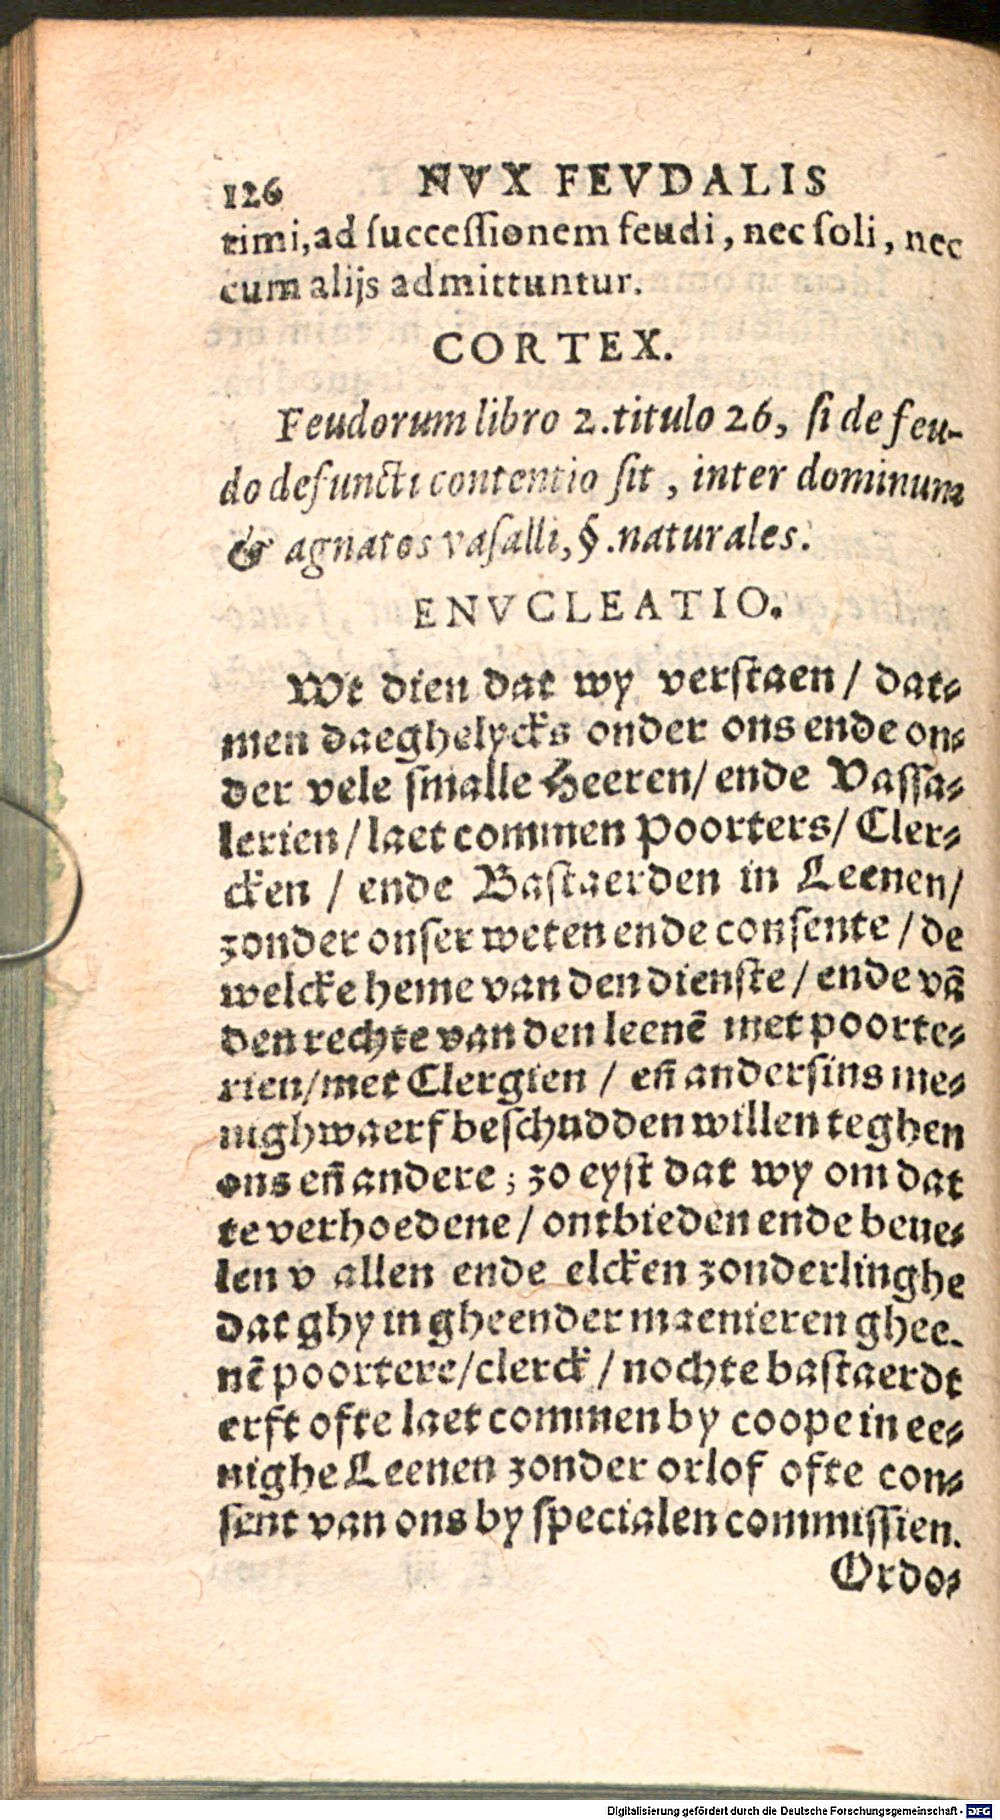 126 NVX FEVDALIS
timi, ad ſucceſſionem feudi, nec ſoli, nec
cum alijs admittuntur.
CORTEX.
Feudorum libro 2. titulo 26, ſi de feu-
do defuncti contentio ſit, inter dominum
& agnatos vaſalli, §. naturales.
ENVCLEATIO.
Wt dien dat wy verſtaen / dat-
men daeghelycks onder ons ende on-
der vele ſmalle Heeren / ende Vaſſa-
lerien / laet commen Poorters / Cler-
cken / ende Baſtaerden in Leenen /
zonder onſer weten ende conſente / de
welcke heme van den dienſte / ende vā
den rechte van den leenē met poorte-
rien / met Clergien / eñ anderſins me-
nighwaerf beſchudden willen teghen
ons eñ andere ; zo eyſt dat wy om dat
te verhoedene / ontbieden ende beue-
len v allen ende elcken zonderlinghe
dat ghy in gheender maenieren ghee-
nē poortere / clerck / nochte baſtaerdt
erft ofte laet commen by coope in ee-
nighe Leenen zonder orlof ofte con-
ſent van ons by ſpecialen commiſſien.
Ordo-
Digitalisierung gefördert durch die Deutsche Forschungsgemeinschaft - DFG